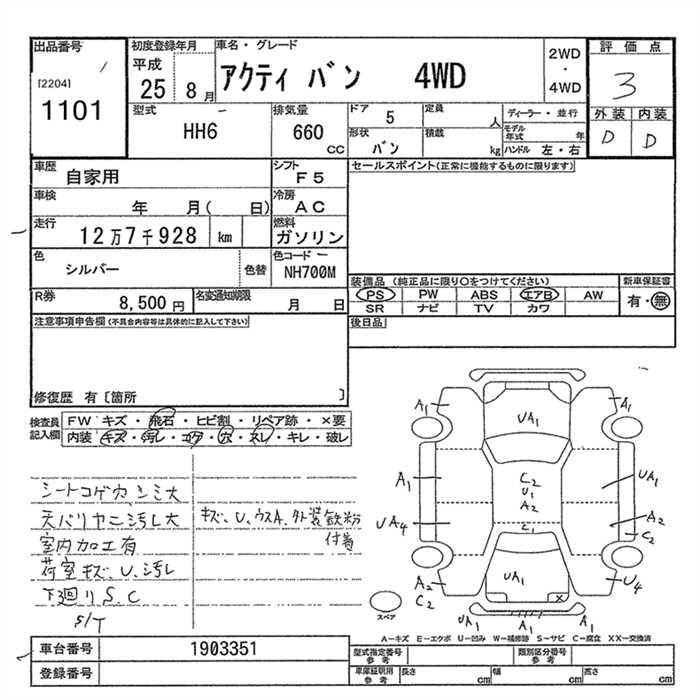 出品番号
[2204]
1101
初度登録年月
平成
25
8月
車名・グレード
アクティ バン 4WD
2WD
・
4WD
評価点
3
外装 内装
D D
型式
HH6
排気量
660
CC
ドア
5
定員
人
ディーラー・並行
形状
バン
積載
kg
モデル年式
年
ハンドル 左・右
車歴
自家用
シフト
F5
車検
年 月( 日)
冷房
AC
走行
12万7千928 km
燃料
ガソリン
色
シルバー
色替
色コード
NH700M
R券
8,500円
名変通知期限
月 日
セールスポイント(正常に機能するものに限ります)
装備品(純正品に限り○をつけてください)
新車保証書
PS PW ABS エアB AW
SR ナビ TV カワ
有・無
後日品
注意事項申告欄(不具合内容等は具体的に記入して下さい)
修復歴 有〔箇所 〕
検査員
記入欄
FW キズ・飛石・ヒビ割・リペア跡・×要
内装 キズ・汚レ・コゲ・穴・スレ・キレ・破レ
シートコゲ穴シミ大
天バリヤニ汚レ大
室内加工有
荷室キズ、U、汚レ
下廻リS.C
S/T
キズ、U、ウスA、外装鉄粉
付着
A1
UA1
A1
A1
C2
U1
A2
C1
UA1
UA4
A2
C2
A2
C2
UA1
×
U4
UA1 A1 A1
スペア
A-キズ E-エクボ U-凹み W-補修跡 S-サビ C-腐食 XX-交換済
車台番号
1903351
登録番号
型式指定番号
参考
類別区分番号
参考
車庫証明用
参考
長さ
cm
幅
cm
高さ
cm